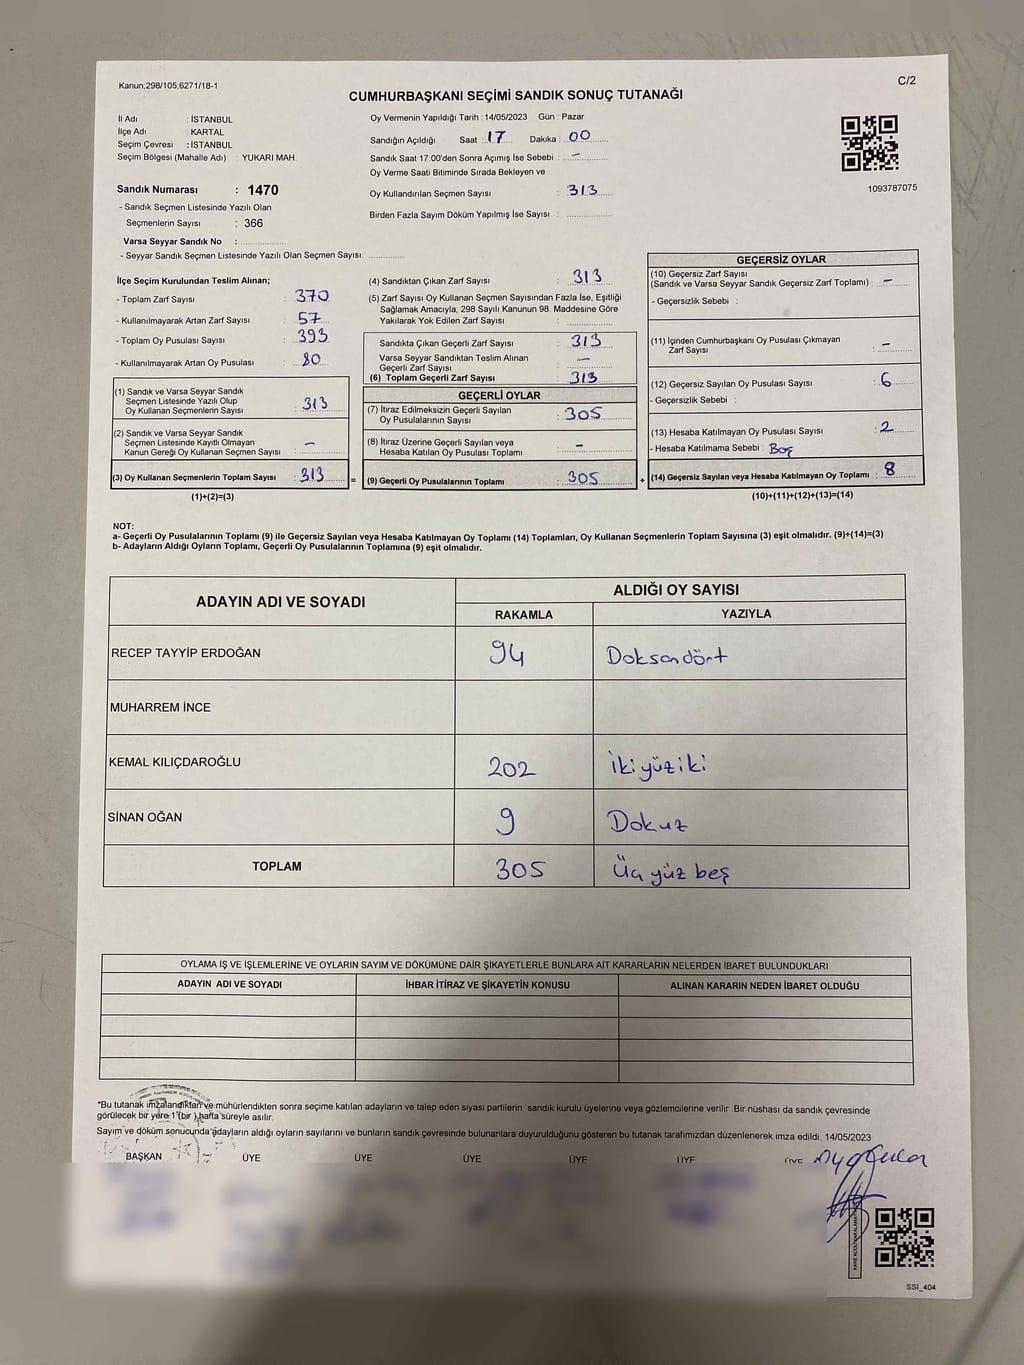 Kanun;298/105,6271/18-1
C/2
CUMHURBAŞKANI SEÇİMİ SANDIK SONUÇ TUTANAĞI
İl Adı : İSTANBUL
İlçe Adı : KARTAL
Seçim Çevresi : İSTANBUL
Seçim Bölgesi (Mahalle Adı) : YUKARI MAH.
Sandık Numarası : 1470
- Sandık Seçmen Listesinde Yazılı Olan
Seçmenlerin Sayısı : 366
Varsa Seyyar Sandık No :
- Seyyar Sandık Seçmen Listesinde Yazılı Olan Seçmen Sayısı:
Oy Vermenin Yapıldığı Tarih :14/05/2023 Gün : Pazar
Sandığın Açıldığı Saat : 17 Dakika : 00
Sandık Saat 17:00'den Sonra Açımış İse Sebebi : –
Oy Verme Saati Bitiminde Sırada Bekleyen ve
Oy Kullandırılan Seçmen Sayısı : 313
Birden Fazla Sayım Döküm Yapılmış İse Sayısı :
1093787075
İlçe Seçim Kurulundan Teslim Alınan;
- Toplam Zarf Sayısı : 370
- Kullanılmayarak Artan Zarf Sayısı : 57
- Toplam Oy Pusulası Sayısı : 393
- Kullanılmayarak Artan Oy Pusulası : 80
(1) Sandık ve Varsa Seyyar Sandık
Seçmen Listesinde Yazılı Olup
Oy Kullanan Seçmenlerin Sayısı : 313
(2) Sandık ve Varsa Seyyar Sandık
Seçmen Listesinde Kayıtlı Olmayan
Kanun Gereği Oy Kullanan Seçmen Sayısı : –
(3) Oy Kullanan Seçmenlerin Toplam Sayısı : 313 =
(1)+(2)=(3)
(4) Sandıktan Çıkan Zarf Sayısı : 313
(5) Zarf Sayısı Oy Kullanan Seçmen Sayısından Fazla İse, Eşitliği
Sağlamak Amacıyla, 298 Sayılı Kanunun 98. Maddesine Göre
Yakılarak Yok Edilen Zarf Sayısı :
Sandıkta Çıkan Geçerli Zarf Sayısı : 313
Varsa Seyyar Sandıktan Teslim Alınan
Geçerli Zarf Sayısı : –
(6) Toplam Geçerli Zarf Sayısı : 313
GEÇERLİ OYLAR
(7) İtiraz Edilmeksizin Geçerli Sayılan
Oy Pusulalarının Sayısı : 305
(8) İtiraz Üzerine Geçerli Sayılan veya
Hesaba Katılan Oy Pusulası Toplamı : –
(9) Geçerli Oy Pusulalarının Toplamı : 305 +
GEÇERSİZ OYLAR
(10) Geçersiz Zarf Sayısı
(Sandık ve Varsa Seyyar Sandık Geçersiz Zarf Toplamı) : –
- Geçersizlik Sebebi :
(11) İçinden Cumhurbaşkanı Oy Pusulası Çıkmayan
Zarf Sayısı : –
(12) Geçersiz Sayılan Oy Pusulası Sayısı : 6
- Geçersizlik Sebebi :
(13) Hesaba Katılmayan Oy Pusulası Sayısı : 2
- Hesaba Katılmama Sebebi : Boş
(14) Geçersiz Sayılan veya Hesaba Katılmayan Oy Toplamı : 8
(10)+(11)+(12)+(13)=(14)
NOT:
a- Geçerli Oy Pusulalarının Toplamı (9) ile Geçersiz Sayılan veya Hesaba Katılmayan Oy Toplamı (14) Toplamları, Oy Kullanan Seçmenlerin Toplam Sayısına (3) eşit olmalıdır. (9)+(14)=(3)
b- Adayların Aldığı Oyların Toplamı, Geçerli Oy Pusulalarının Toplamına (9) eşit olmalıdır.
ADAYIN ADI VE SOYADI
ALDIĞI OY SAYISI
RAKAMLA YAZIYLA
RECEP TAYYİP ERDOĞAN 94 Doksandört
MUHARREM İNCE
KEMAL KILIÇDAROĞLU 202 İkiyüziki
SİNAN OĞAN 9 Dokuz
TOPLAM 305 Üç yüz beş
OYLAMA İŞ VE İŞLEMLERİNE VE OYLARIN SAYIM VE DÖKÜMÜNE DAİR ŞİKAYETLERLE BUNLARA AİT KARARLARIN NELERDEN İBARET BULUNDUKLARI
ADAYIN ADI VE SOYADI İHBAR İTİRAZ VE ŞİKAYETİN KONUSU ALINAN KARARIN NEDEN İBARET OLDUĞU
*Bu tutanak imzalandıktan ve mühürlendikten sonra seçime katılan adayların ve talep eden siyasi partilerin sandık kurulu üyelerine veya gözlemcilerine verilir .Bir nüshası da sandık çevresinde
görülecek bir yere 1 (bir ) hafta süreyle asılır.
Sayım ve döküm sonucunda adayların aldığı oyların sayılarını ve bunların sandık çevresinde bulunanlara duyurulduğunu gösteren bu tutanak tarafımızdan düzenlenerek imza edildi. 14/05/2023
BAŞKAN ÜYE ÜYE ÜYE ÜYE ÜYE ÜYE
SSI_404